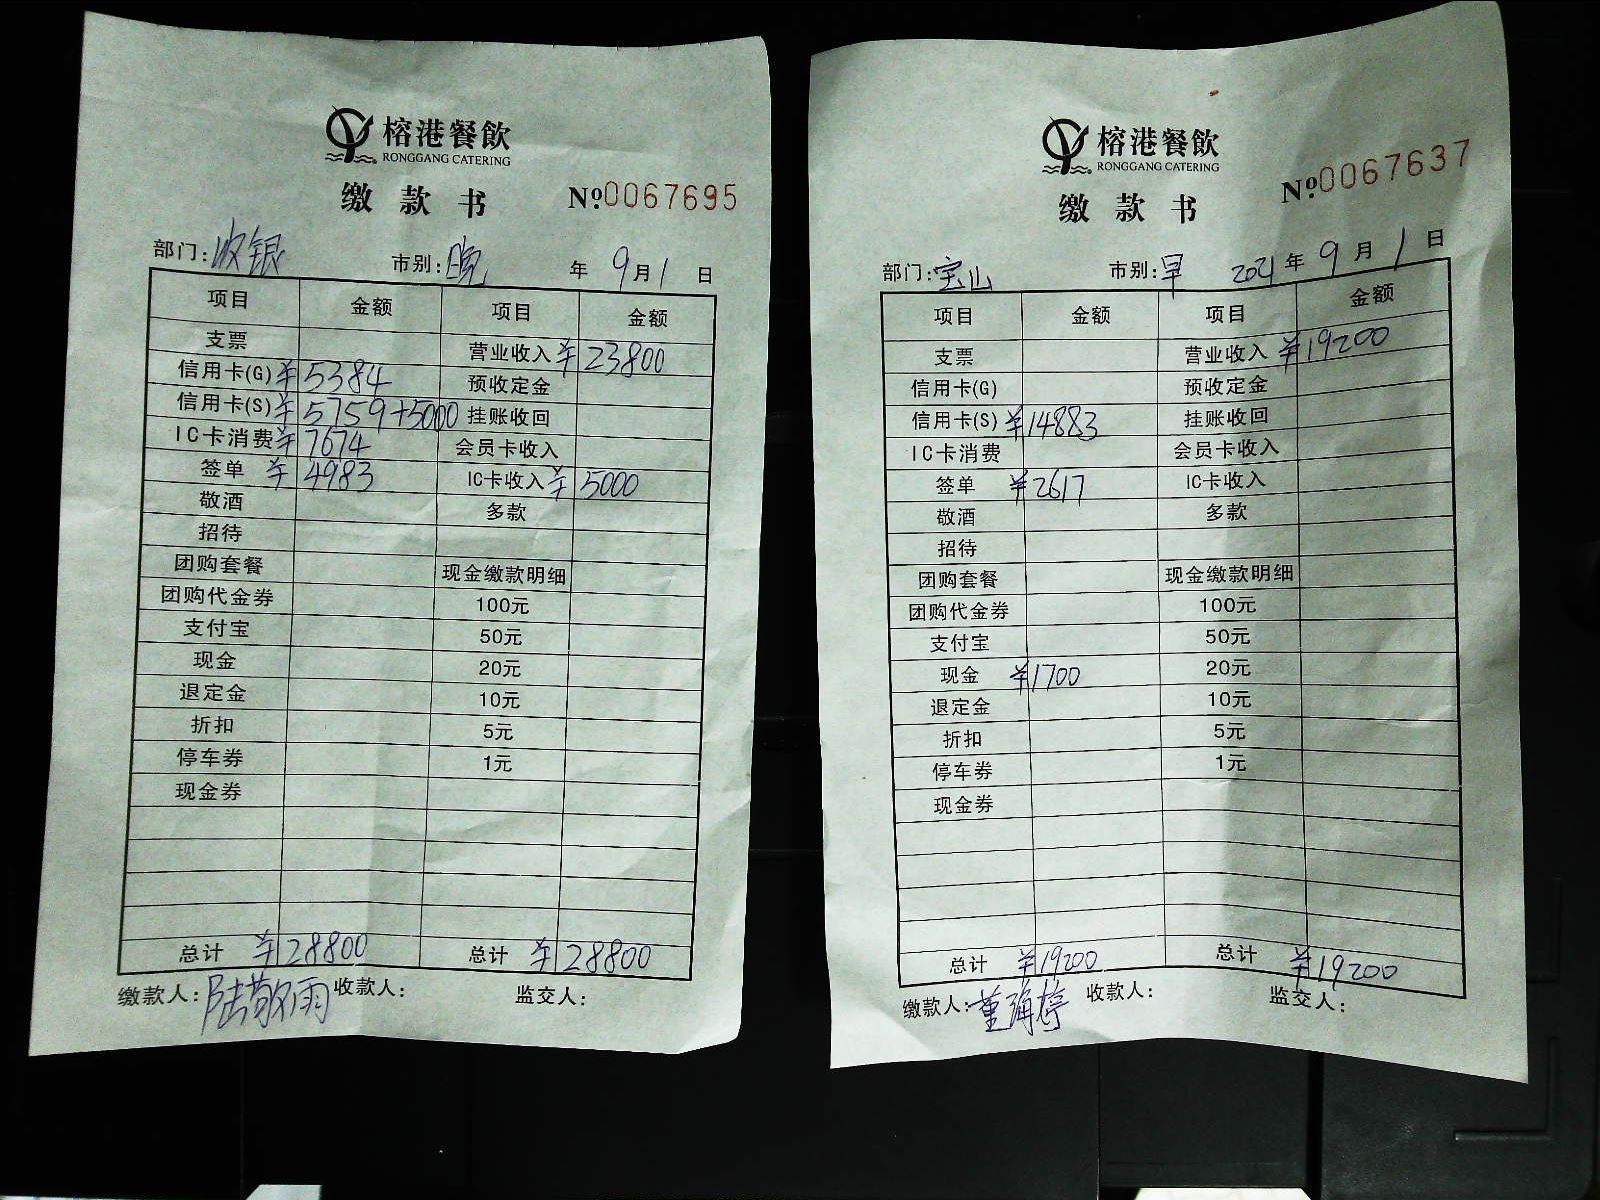 榕港餐飲
RONGGANG CATERING
缴款书 №0067695
部门:收银 市别:晚 年9月1日
项目 金额 项目 金额
支票 营业收入 ¥23800
信用卡(G) ¥5384 预收定金
信用卡(S) ¥5759+5000 挂账收回
IC卡消费 ¥7674 会员卡收入
签单 ¥4983 IC卡收入 ¥5000
敬酒 多款
招待
团购套餐 现金缴款明细
团购代金券 100元
支付宝 50元
现金 20元
退定金 10元
折扣 5元
停车券 1元
现金券
总计 ¥28800 总计 ¥28800
缴款人:陆敬雨 收款人: 监交人:
榕港餐飲
RONGGANG CATERING
缴款书 №0067637
部门:宝山 市别:早 2021年9月1日
项目 金额 项目 金额
支票 营业收入 ¥19200
信用卡(G) 预收定金
信用卡(S) ¥14883 挂账收回
IC卡消费 会员卡收入
签单 ¥2617 IC卡收入
敬酒 多款
招待
团购套餐 现金缴款明细
团购代金券 100元
支付宝 50元
现金 ¥1700 20元
退定金 10元
折扣 5元
停车券 1元
现金券
总计 ¥19200 总计 ¥19200
缴款人:董 婷 收款人: 监交人: